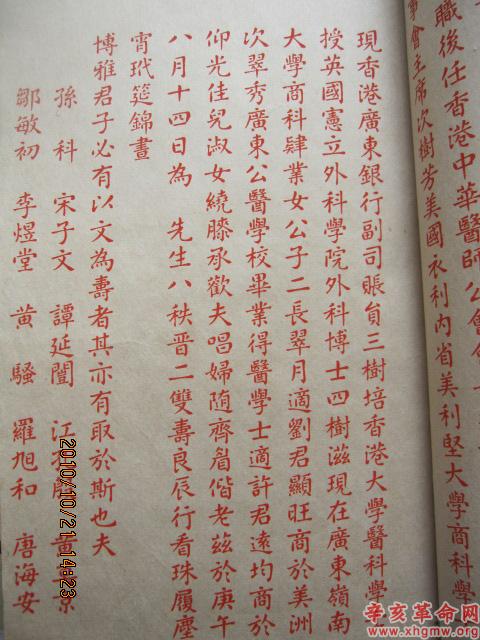 職後任香港中華醫師公會會
事會主席次樹芳美國衣利內省美利堅大學商科學
現香港廣東銀行副司賬員三樹培香港大學醫科學
授英國憲立外科學院外科博士四樹滋現在廣東嶺南
大學商科肄業女公子二長翠月適劉君顯旺商於美洲
次翠秀廣東公醫學校畢業得醫學士適許君遠均商於
仰光佳兒淑女繞膝承歡夫唱婦随齊眉偕老茲於庚午
八月十四日為 先生八秩晋二雙壽良辰行看珠履塵
宵玳筵錦晝
博雅君子必有以文為壽者其亦有取於斯也夫
孫 科 宋子文 譚延闓 江 黄 景
鄒敏初 李煜堂 黄 騷 羅旭和 唐海安
2010/10/21 14:23
辛亥革命网
www.xhgmw.org